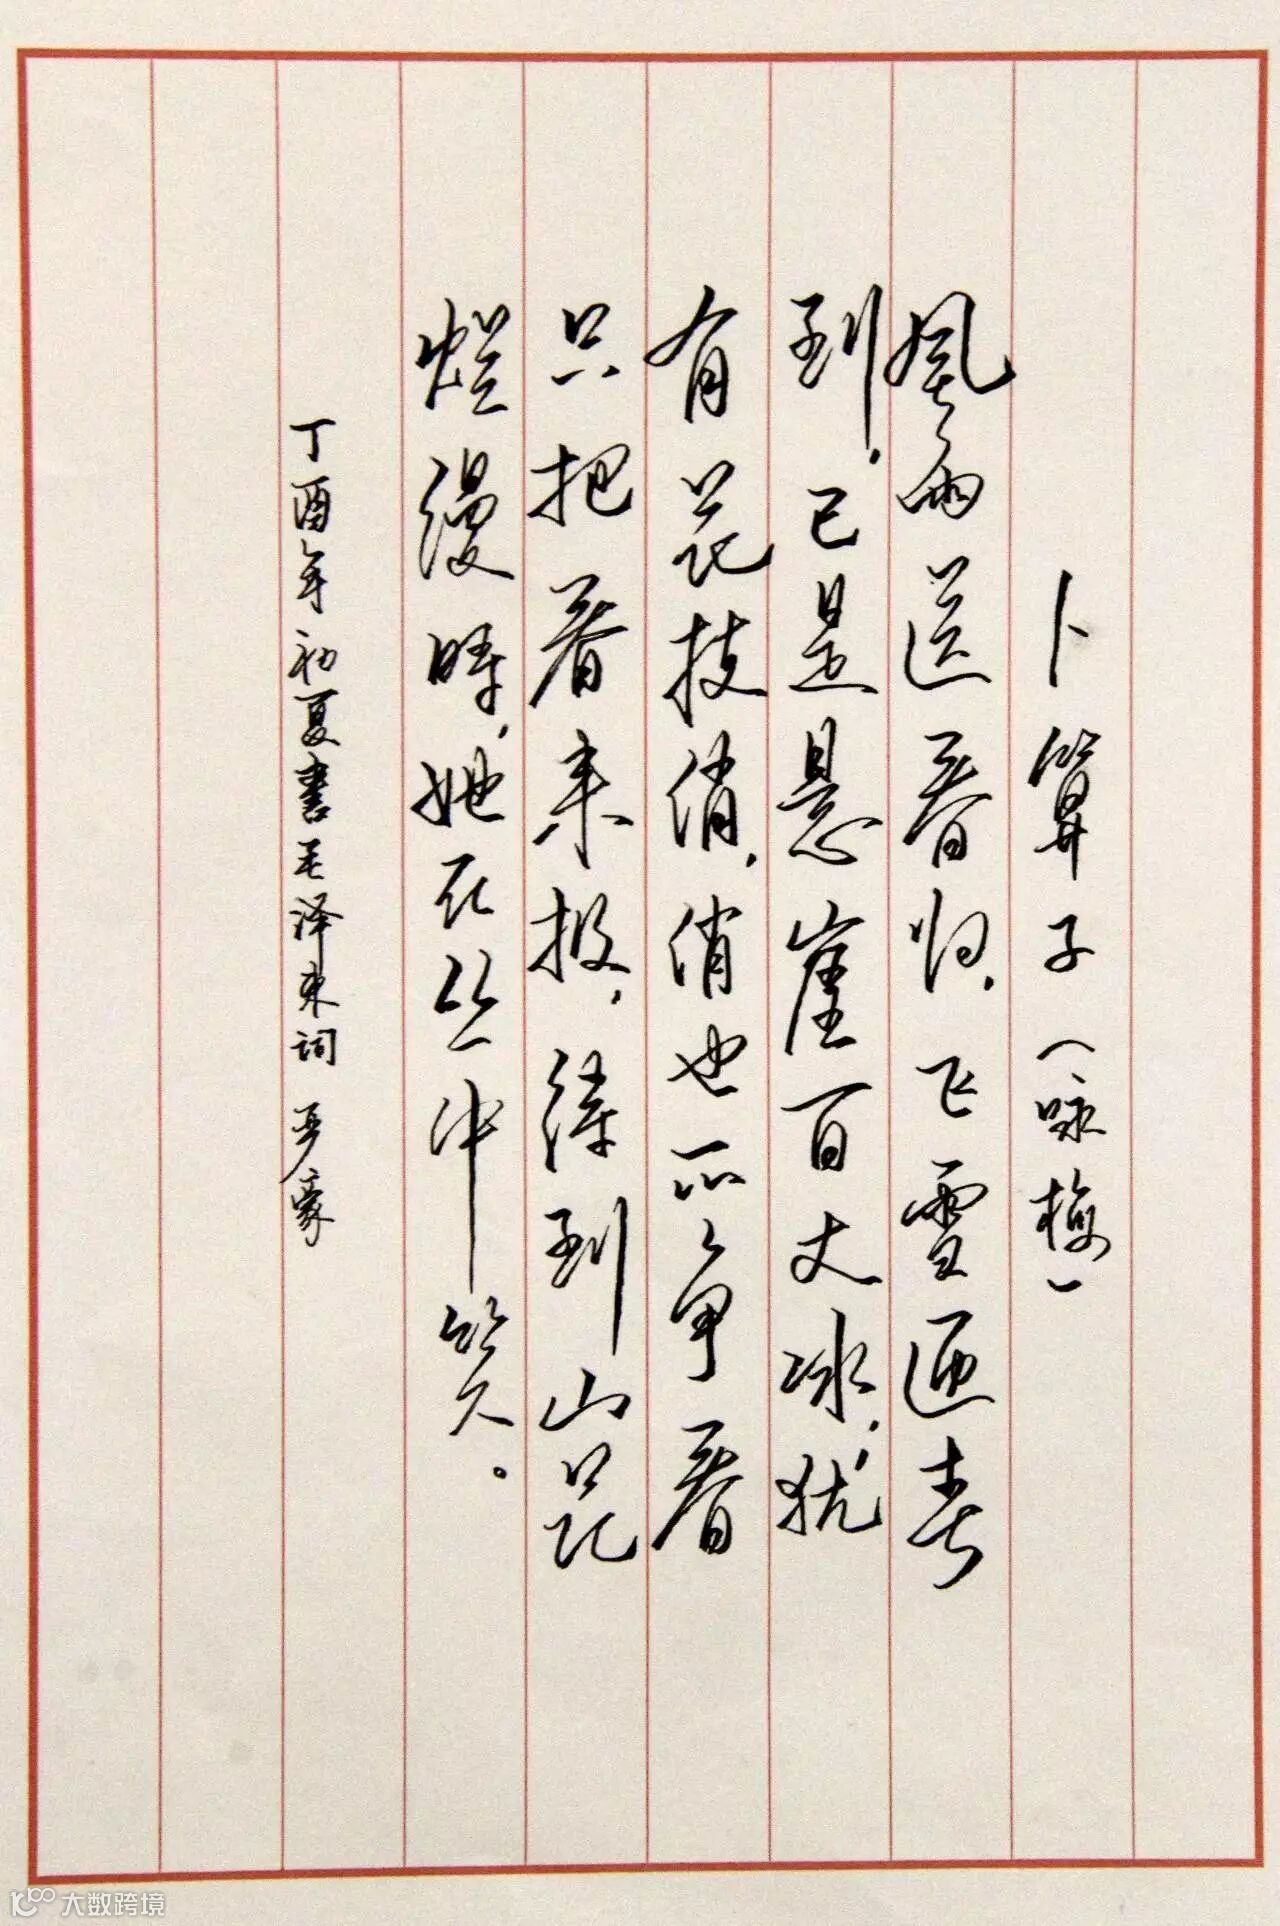 卜算子（咏梅）
風雨送春归，飞雪迎春
到，已是悬崖百丈冰，犹
有花枝俏，俏也不争春
只把春来报，待到山花
烂漫時，她在丛中笑。
丁酉年初夏書毛泽东词 豪
大数跨境